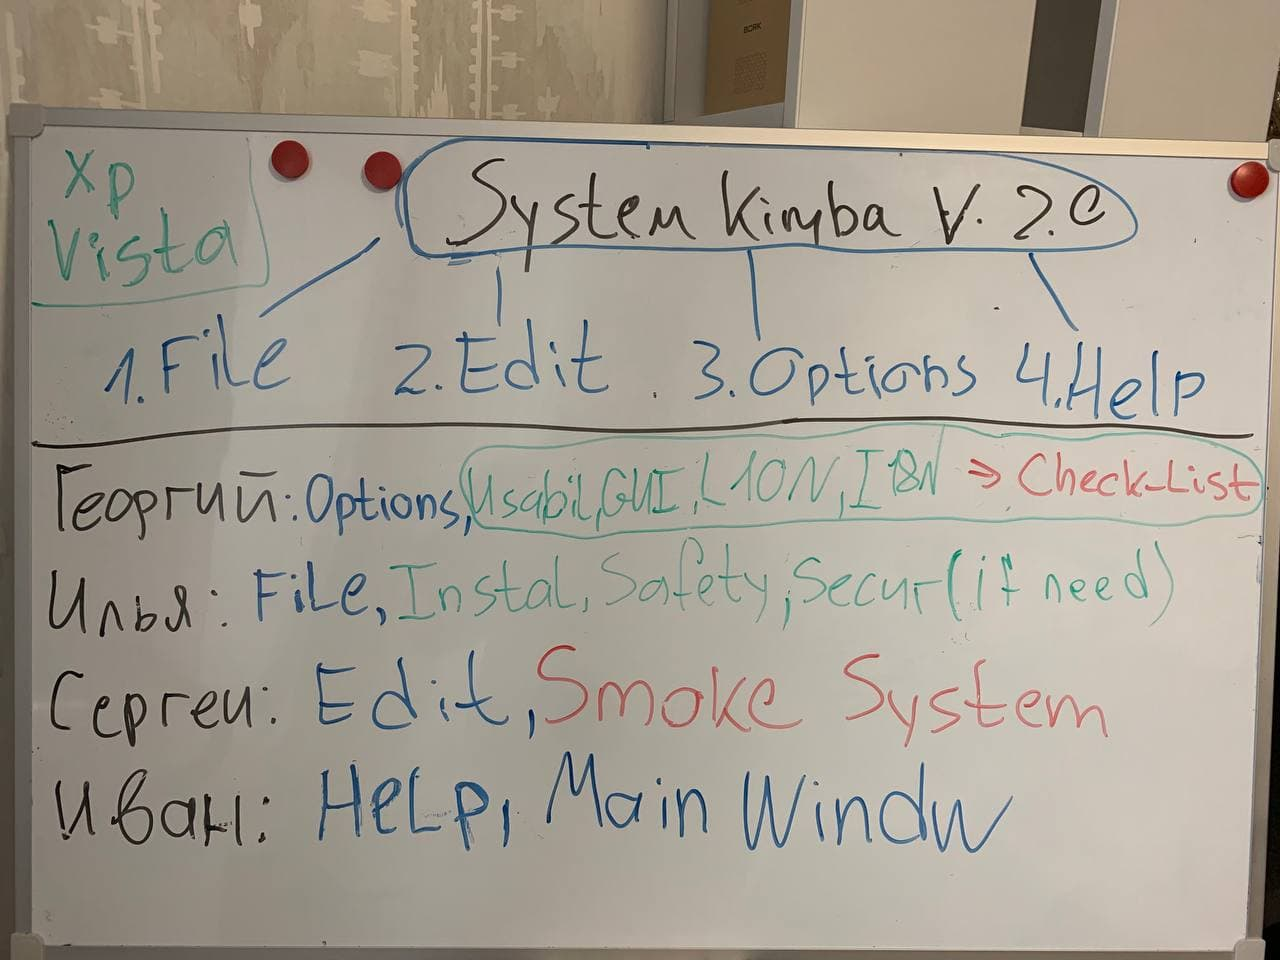 BORK
Xp
Vista
System Kimba V. 2.0
1.File 2.Edit. 3.Options 4.Help
Георгий: Options, Usabil, GUI, L10N, I18N => Check-List
Илья: File, Instal, Safety, Secur (if need)
Сергеи: Edit, Smoke System
Иван: Help, Main Windw